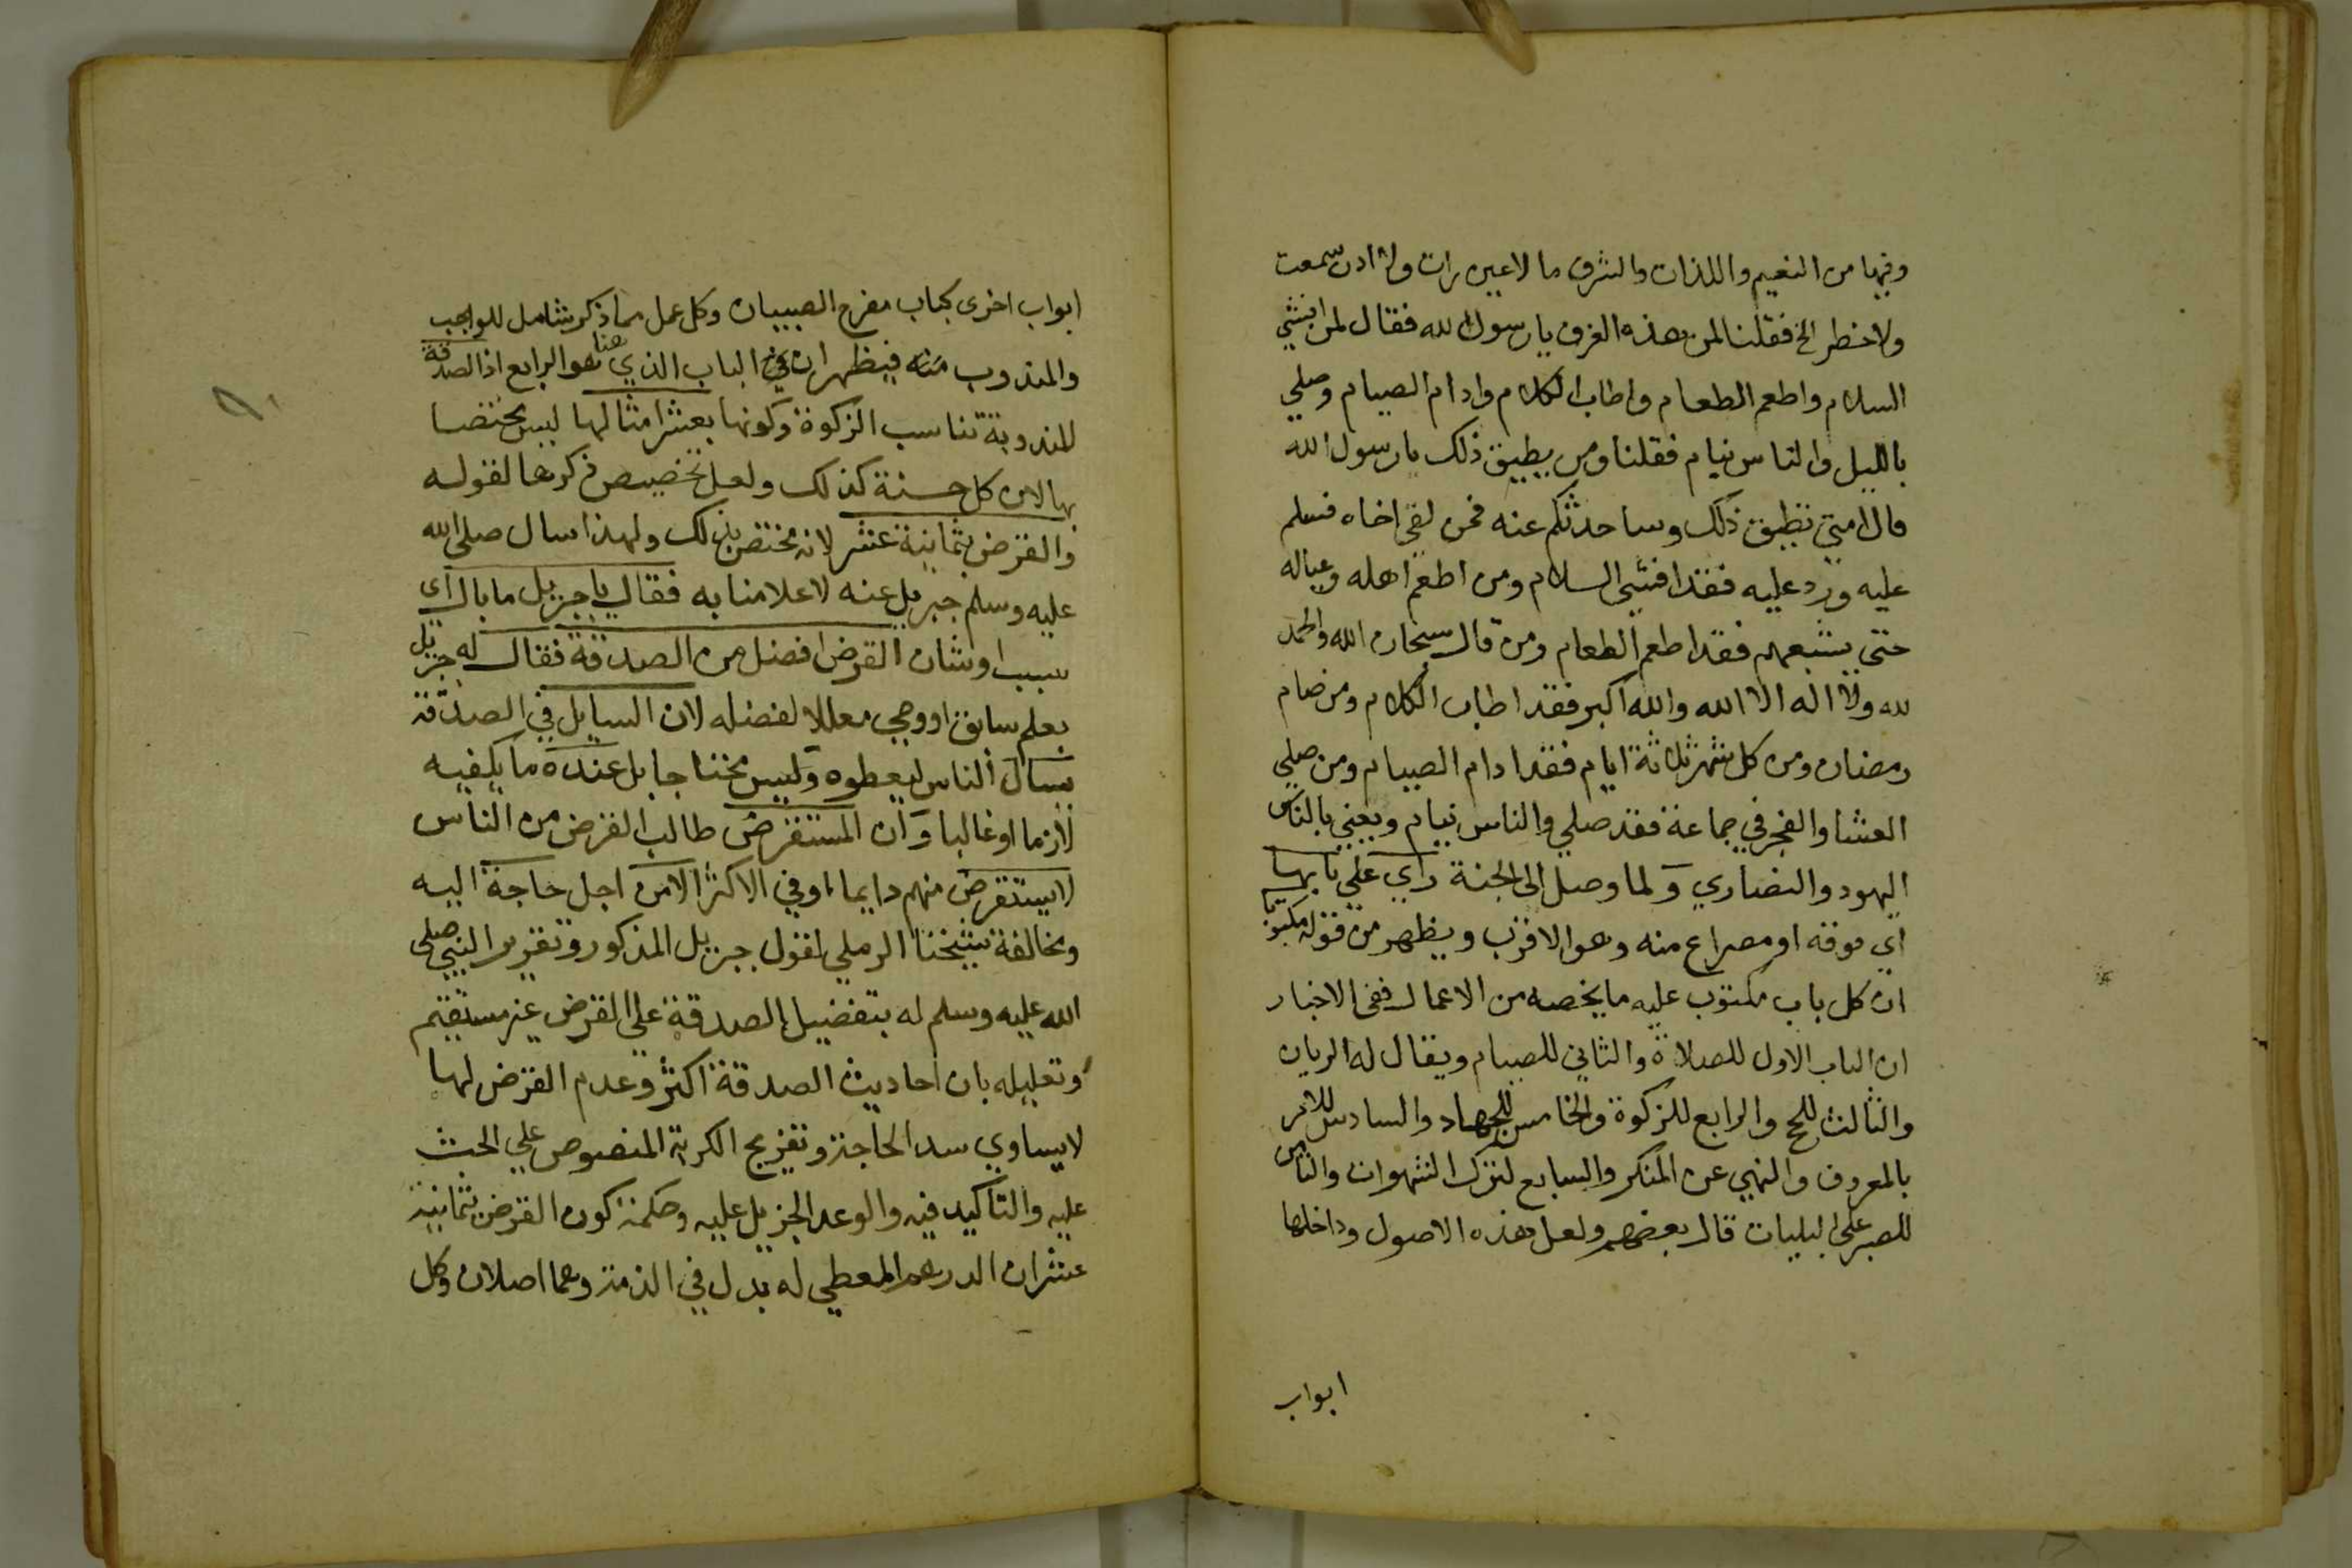 وفيها من النعيم واللذات والشرف ما لا عين رات ولا اذن سمعت
ولا خطر الخ فقلنا لمن هذه الغرف يا رسول الله فقال لمن افشي
السلام واطعم الطعام واطاب الكلام وادام الصيام وصلي
بالليل والناس نيام فقلنا ومن يطيق ذلك يا رسول الله
قال امتي تطيق ذلك وساحدثكم عنه فمن لقي اخاه فسلم
عليه ورد عليه فقد افشي السلام ومن اطعم اهله وعياله
حتى يشبعهم فقد اطعم الطعام ومن قال سبحان الله والحمد
لله ولا اله الا الله والله اكبر فقد اطاب الكلام ومن صام
رمضان ومن كل شهر ثلاثة ايام فقد ادام الصيام ومن صلي
العشا والفجر في جماعة فقد صلي والناس نيام ويعني بالناس
اليهود والنصاري ولما وصل الى الجنة راي علي بابها
اي فوقه او مصراع منه وهو الاقرب ويظهر من قوله مكتوبا
ان كل باب مكتوب عليه ما يخصه من الاعمال ففي الاخبار
ان الباب الاول للصلاة والثاني للصيام ويقال له الريان
والثالث للحج والرابع للزكوة والخامس للجهاد والسادس للامر
بالمعروف والنهي عن المنكر والسابع لترك الشهوات والثامن
للصبر على البليات قال بعضهم ولعل هذه الاصول وداخلها
ابواب
ابواب اخرى كباب مفرح الصبيان وكل عمل مما ذكر شامل للواجب
والمندوب منه فيظهر ان الباب الذي هنا هو الرابع اذ الصدقة
المندوبة تناسب الزكوة وكونها بعشر امثالها ليس مختصا
بها لان كل حسنة كذلك ولعل تخصيص ذكرها لقوله
والقرض بثمانية عشر لانه مختص بذلك ولهذا سال صلى الله
عليه وسلم جبريل عنه لاعلامنا به فقال يا جبريل ما بال اي
سبب او شان القرض افضل من الصدقة فقال له جبريل
بعلم سابق او وحي معللا لفضله لان السايل في الصدقة
يسال الناس ليعطوه وليس محتاجا بل عنده ما يكفيه
لازما او غالبا وان المستقرض طالب القرض من الناس
لا يستقرض منهم دايما او في الاكثر الا من اجل حاجة اليه
ومخالفة شيخنا الرملي لقول جبريل المذكور وتقرير النبي صلى
الله عليه وسلم له بتفضيل الصدقة على القرض غير مستقيم
وتعليله بان احاديث الصدقة اكثر وعدم القرض لها
لا يساوي سد الحاجة وتفريج الكربة المنصوص علي الحث
عليه والتاكيد فيه والوعد الجزيل عليه وحكمة كون القرض بثمانية
عشر ان الدرهم المعطي له بدل في الذمة وهما اصلان وكل